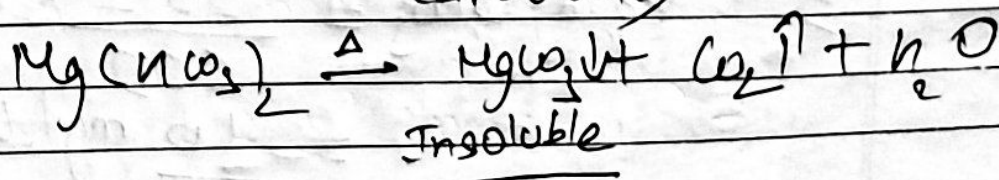 Mg(HCO₃)₂ →Δ MgCO₃↓ + CO₂↑ + H₂O
Insoluble